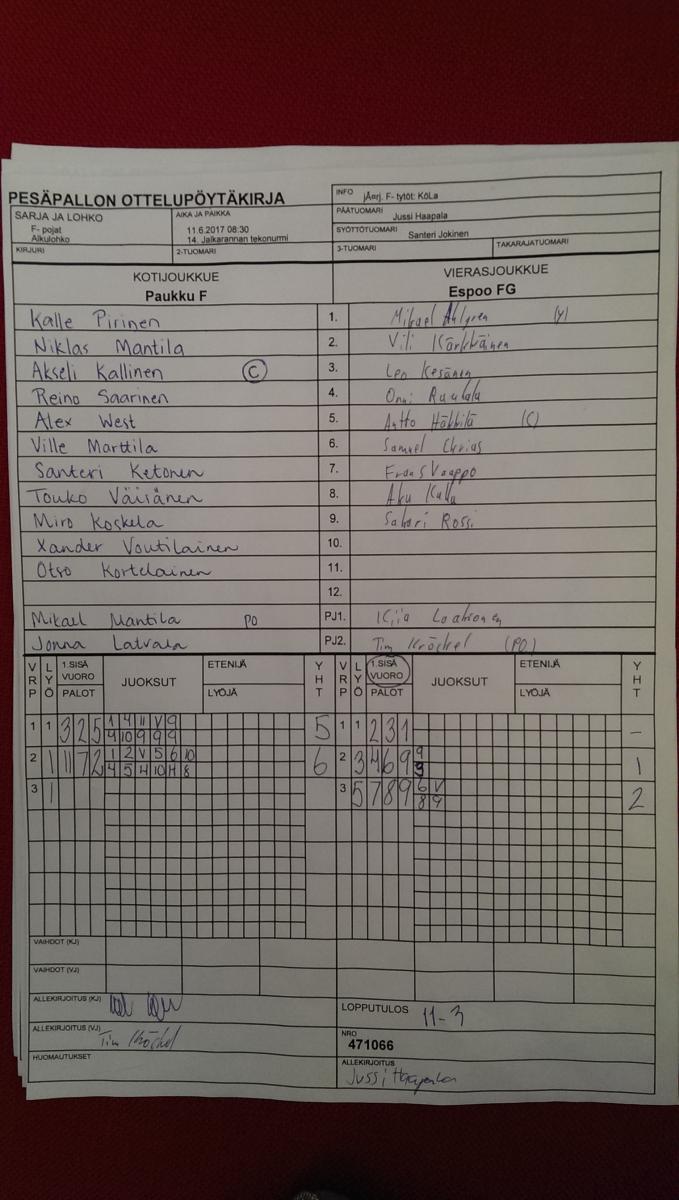 PESÄPALLON OTTELUPÖYTÄKIRJA
INFO jÄarj. F- tytöt: KöLa
SARJA JA LOHKO
F- pojat
Alkulohko
AIKA JA PAIKKA
11.6.2017 08:30
14. Jalkarannan tekonurmi
PÄÄTUOMARI Jussi Haapala
SYÖTTÖTUOMARI Santeri Jokinen
KIRJURI
2-TUOMARI
3-TUOMARI
TAKARAJATUOMARI
KOTIJOUKKUE
Paukku F
VIERASJOUKKUE
Espoo FG
Kalle Pirinen 1. Mikael Ahlgren (V)
Niklas Mantila 2. Vili Kärkkäinen
Akseli Kallinen C 3. Leo Kesänen
Reino Saarinen 4. Onni
Alex West 5. Antto (C)
Ville Marttila 6. Samuel
Santeri Ketonen 7. Frans Vaappo
Touko Väisänen 8. Aku
Miro Koskela 9. Sakari Rossi
Xander Voutilainen 10.
Otso Kortelainen 11.
12.
Mikael Mantila PO PJ1.
Jonna Latvala PJ2. Tim (PO)
VRP LYÖ 1.SISÄ VUORO PALOT JUOKSUT ETENIJÄ LYÖJÄ YHT VRP LYÖ 1.SISÄ VUORO PALOT JUOKSUT ETENIJÄ LYÖJÄ YHT
1 1 3 2 5 1 4 11 V 9 5 1 1 2 3 1 -
4 10 9 9 9
2 1 11 7 2 1 2 V 5 6 10 6 2 3 4 6 9 9 1
4 5 4 10 11 8 9
3 1 3 5 7 8 9 6 V 2
8 9
VAIHDOT (KJ)
VAIHDOT (VJ)
ALLEKIRJOITUS (KJ)
LOPPUTULOS 11-3
ALLEKIRJOITUS (VJ) Tim
NRO
471066
HUOMAUTUKSET
ALLEKIRJOITUS
Jussi Haapala